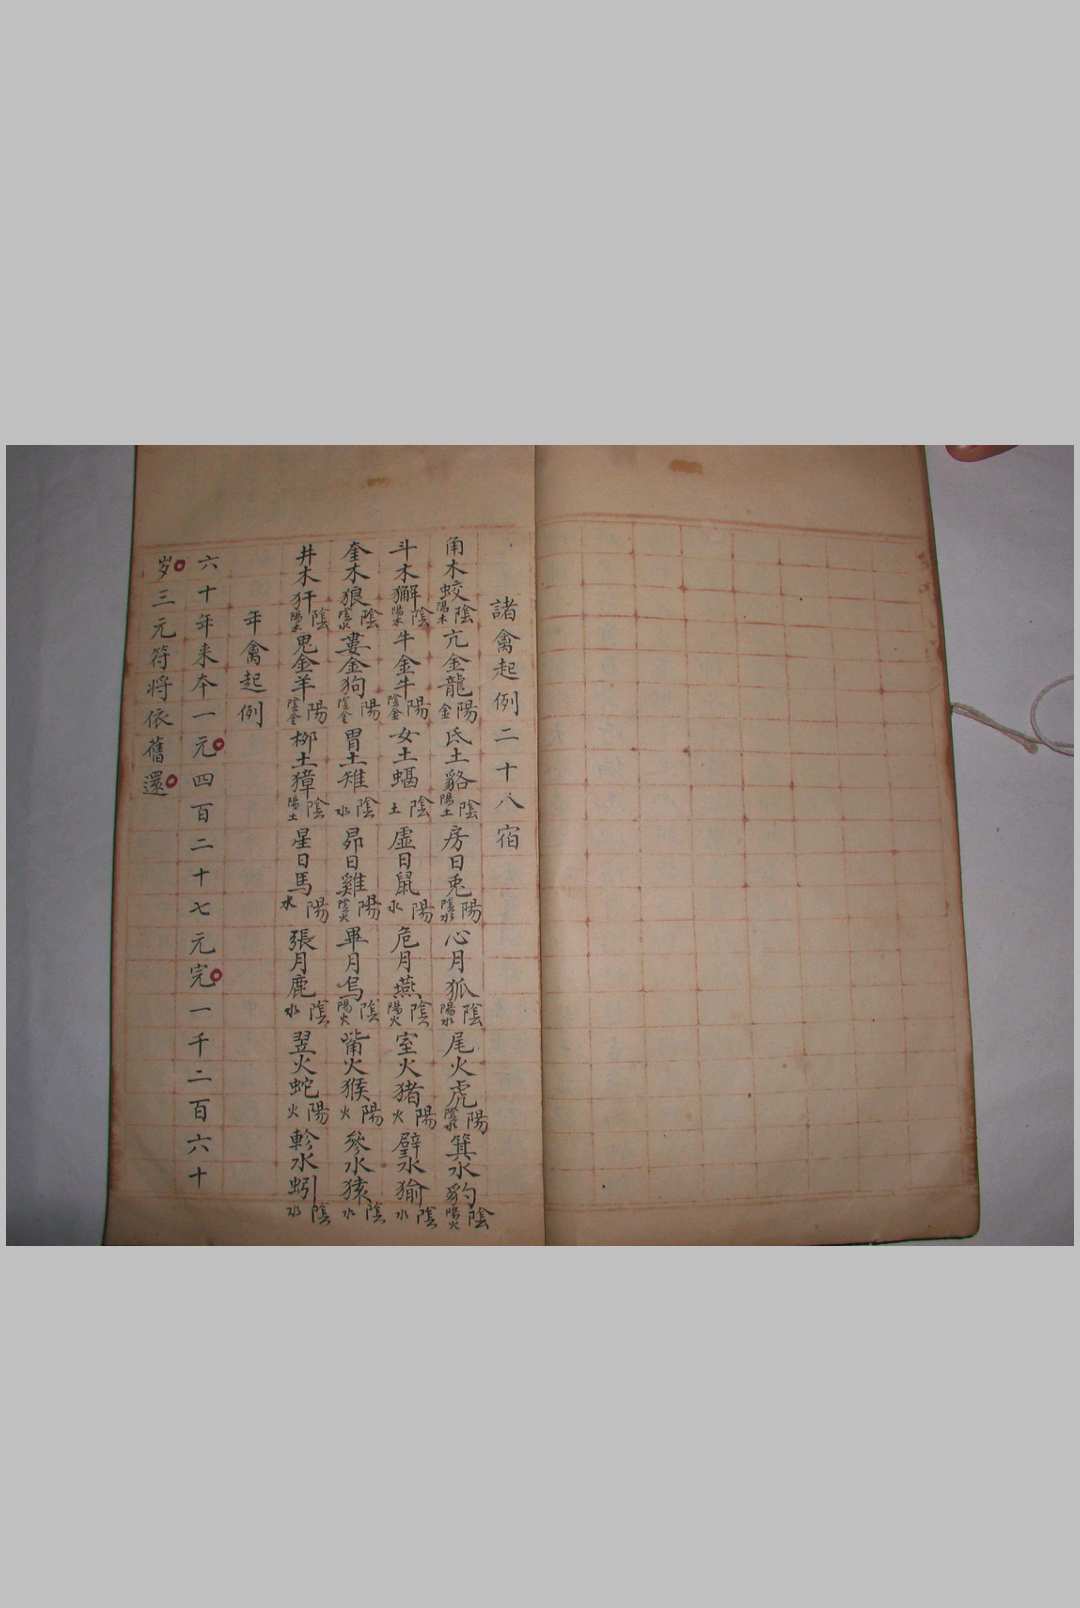 諸禽起例二十八宿
角木蛟陰陽木亢金龍陽金氐土貉陰陽土房日兎陽陰水心月狐陰陽水尾火虎陽陰水箕水豹陰陽火
斗木獬陰陽木牛金牛陽陰金女土蝠陰土虛日鼠陽水危月燕陰陽火室火猪陽火壁水㺄陰水
奎木狼陰陰水婁金狗陽陰金胃土雉陰水昴日雞陽陰火畢月烏陰陽火觜火猴陽火參水猿陰水
井木犴陰陽木鬼金羊陽陰金柳土獐陰陽土星日馬陽水張月鹿陰水翌火蛇陽火軫水蚓陰水
年禽起例
六十年来夲一元四百二十七元完一千二百六十
岁三元符将依舊還